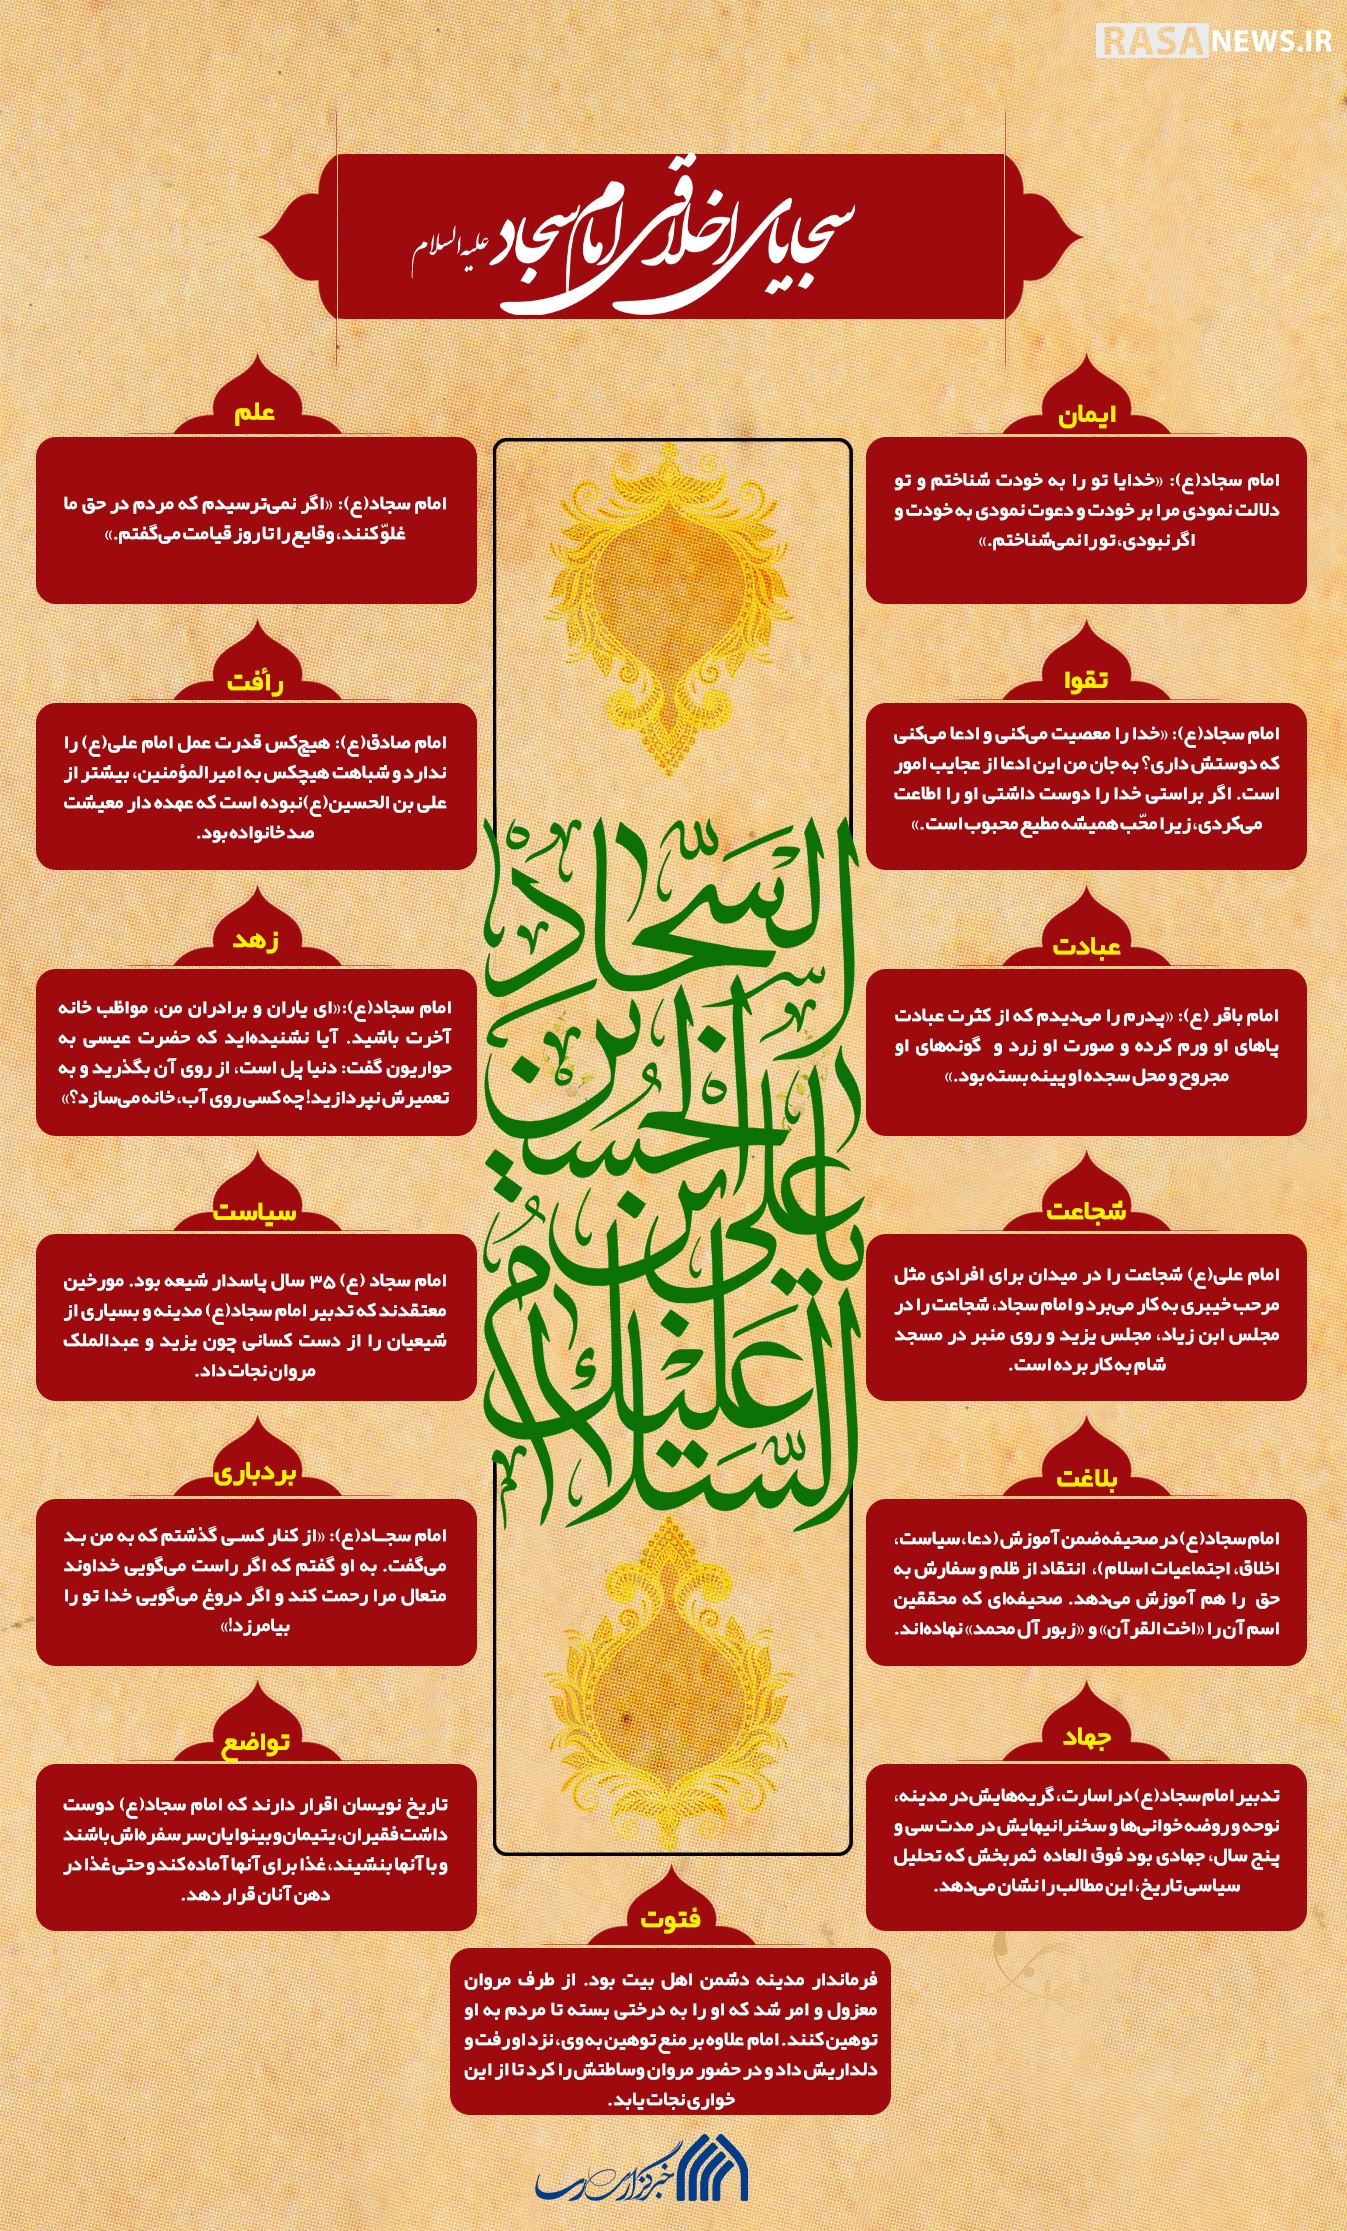 RASANEWS.IR
سجایای اخلاقی امام سجاد علیه السلام
ایمان
امام سجاد(ع): «خدایا تو را به خودت شناختم و تو
دلالت نمودی مرا بر خودت و دعوت نمودی به خودت و
اگر نبودی، تو را نمی‌شناختم.»
تقوا
امام سجاد(ع): «خدا را معصیت می‌کنی و ادعا می‌کنی
که دوستش داری؟ به جان من این ادعا از عجایب امور
است. اگر براستی خدا را دوست داشتی او را اطاعت
می‌کردی، زیرا محّب همیشه مطیع محبوب است.»
عبادت
امام باقر (ع): «پدرم را می‌دیدم که از کثرت عبادت
پاهای او ورم کرده و صورت او زرد و گونه‌های او
مجروح و محل سجده او پینه بسته بود.»
شجاعت
امام علی(ع) شجاعت را در میدان برای افرادی مثل
مرحب خیبری به کار می‌برد و امام سجاد، شجاعت را در
مجلس ابن زیاد، مجلس یزید و روی منبر در مسجد
شام به کار برده است.
بلاغت
امام سجاد(ع) در صحیفه‌ضمن آموزش (دعا، سیاست،
اخلاق، اجتماعیات اسلام)، انتقاد از ظلم و سفارش به
حق را هم آموزش می‌دهد. صحیفه‌ای که محققین
اسم آن را «اخت القرآن» و «زبور آل محمد» نهاده‌اند.
جهاد
تدبیر امام سجاد(ع) در اسارت، گریه‌هایش در مدینه،
نوحه و روضه خوانی‌ها و سخنرانیهایش در مدت سی و
پنج سال، جهادی بود فوق العاده ثمربخش که تحلیل
سیاسی تاریخ، این مطالب را نشان می‌دهد.
علم
امام سجاد(ع): «اگر نمی‌ترسیدم که مردم در حق ما
غلوّ کنند، وقایع را تا روز قیامت می‌گفتم.»
رأفت
امام صادق(ع): هیچ‌کس قدرت عمل امام علی(ع) را
ندارد و شباهت هیچکس به امیرالمؤمنین، بیشتر از
علی بن الحسین(ع)نبوده است که عهده دار معیشت
صد خانواده بود.
زهد
امام سجاد(ع):«ای یاران و برادران من، مواظب خانه
آخرت باشید. آیا نشنیده‌اید که حضرت عیسی به
حواریون گفت: دنیا پل است، از روی آن بگذرید و به
تعمیرش نپردازید! چه کسی روی آب، خانه می‌سازد؟»
سیاست
امام سجاد (ع) ۳۵ سال پاسدار شیعه بود. مورخین
معتقدند که تدبیر امام سجاد(ع) مدینه و بسیاری از
شیعیان را از دست کسانی چون یزید و عبدالملک
مروان نجات داد.
بردباری
امام سجـاد(ع): «از کنار کسـی گذشتم که به من بـد
می‌گفت. به او گفتم که اگر راست می‌گویی خداوند
متعال مرا رحمت کند و اگر دروغ می‌گویی خدا تو را
بیامرزد!»
تواضع
تاریخ نویسان اقرار دارند که امام سجاد(ع) دوست
داشت فقیران، یتیمان و بینوایان سر سفره‌اش باشند
و با آنها بنشیند، غذا برای آنها آماده کند و حتی غذا در
دهن آنان قرار دهد.
السلام
علیک
یا علی ابن
الحسین
السجاد
فتوت
فرماندار مدینه دشمن اهل بیت بود. از طرف مروان
معزول و امر شد که او را به درختی بسته تا مردم به او
توهین کنند. امام علاوه بر منع توهین به وی، نزد او رفت و
دلداریش داد و در حضور مروان وساطتش را کرد تا از این
خواری نجات یابد.
خبرگزاری رسا